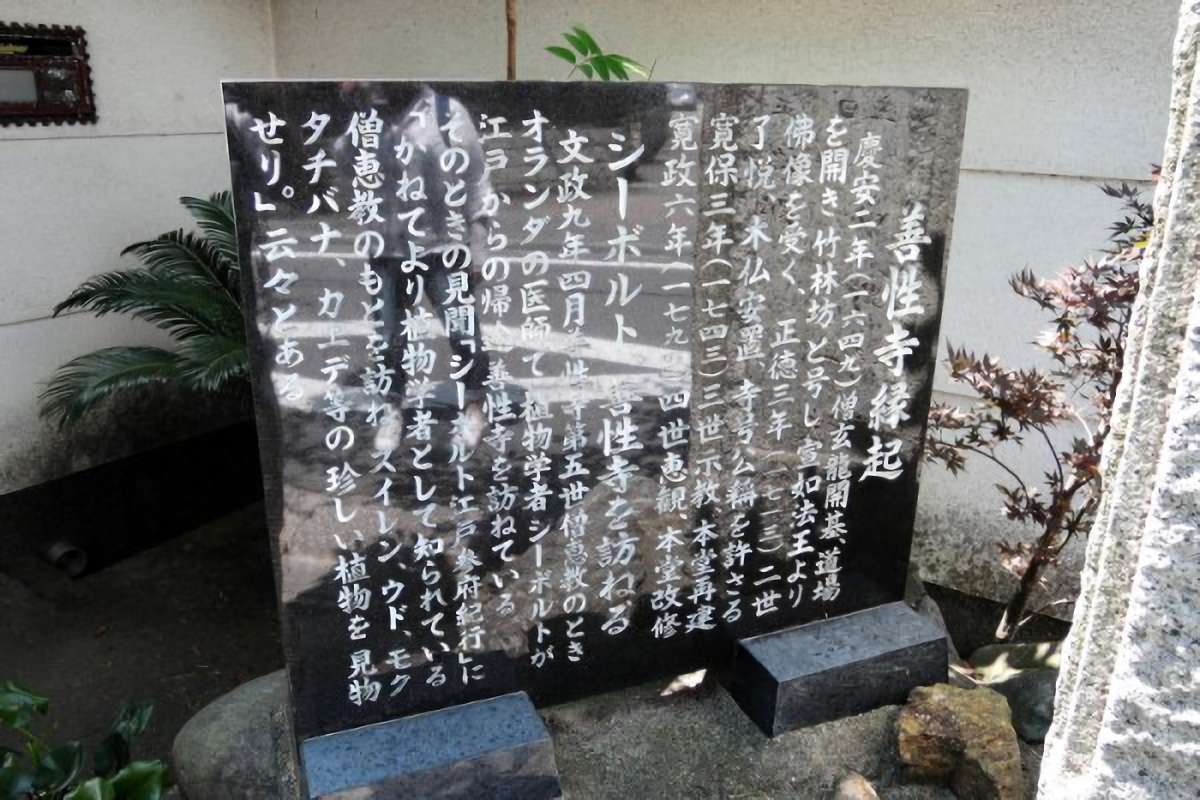 善性寺縁起
慶安二年(一六四九)僧玄龍開基、道場
を開き竹林坊と号し宣如法王より
佛像を受く、正徳三年(一七一三)二世
了悦、木仏安置、寺号公称を許さる
寛保三年(一七四三)三世示教、本堂再建
寛政六年(一七九四)四世恵観、本堂改修
シーボルト善性寺を訪ねる
文政九年四月善性寺第五世僧恵教のとき
オランダの医師で植物学者シーボルトが
江戸からの帰 善性寺を訪ねている
そのときの見聞「シーボルト江戸参府紀行」に
「かねてより植物学者として知られている
僧恵教のもとを訪ね スイレン、ウド、モク
タチバナ、カエデ等の珍しい植物を見物
せり。」云々とある